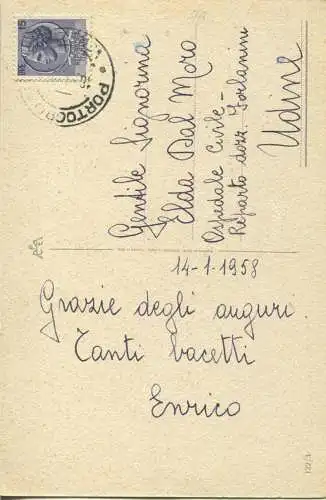 PORTOGR
Gentile Signorina
Elda Dal Moro
Ospedale Civile -
Reparto dozz. Forlanini
Udine
14-1-1958
Grazie degli auguri.
Tanti bacetti
Enrico